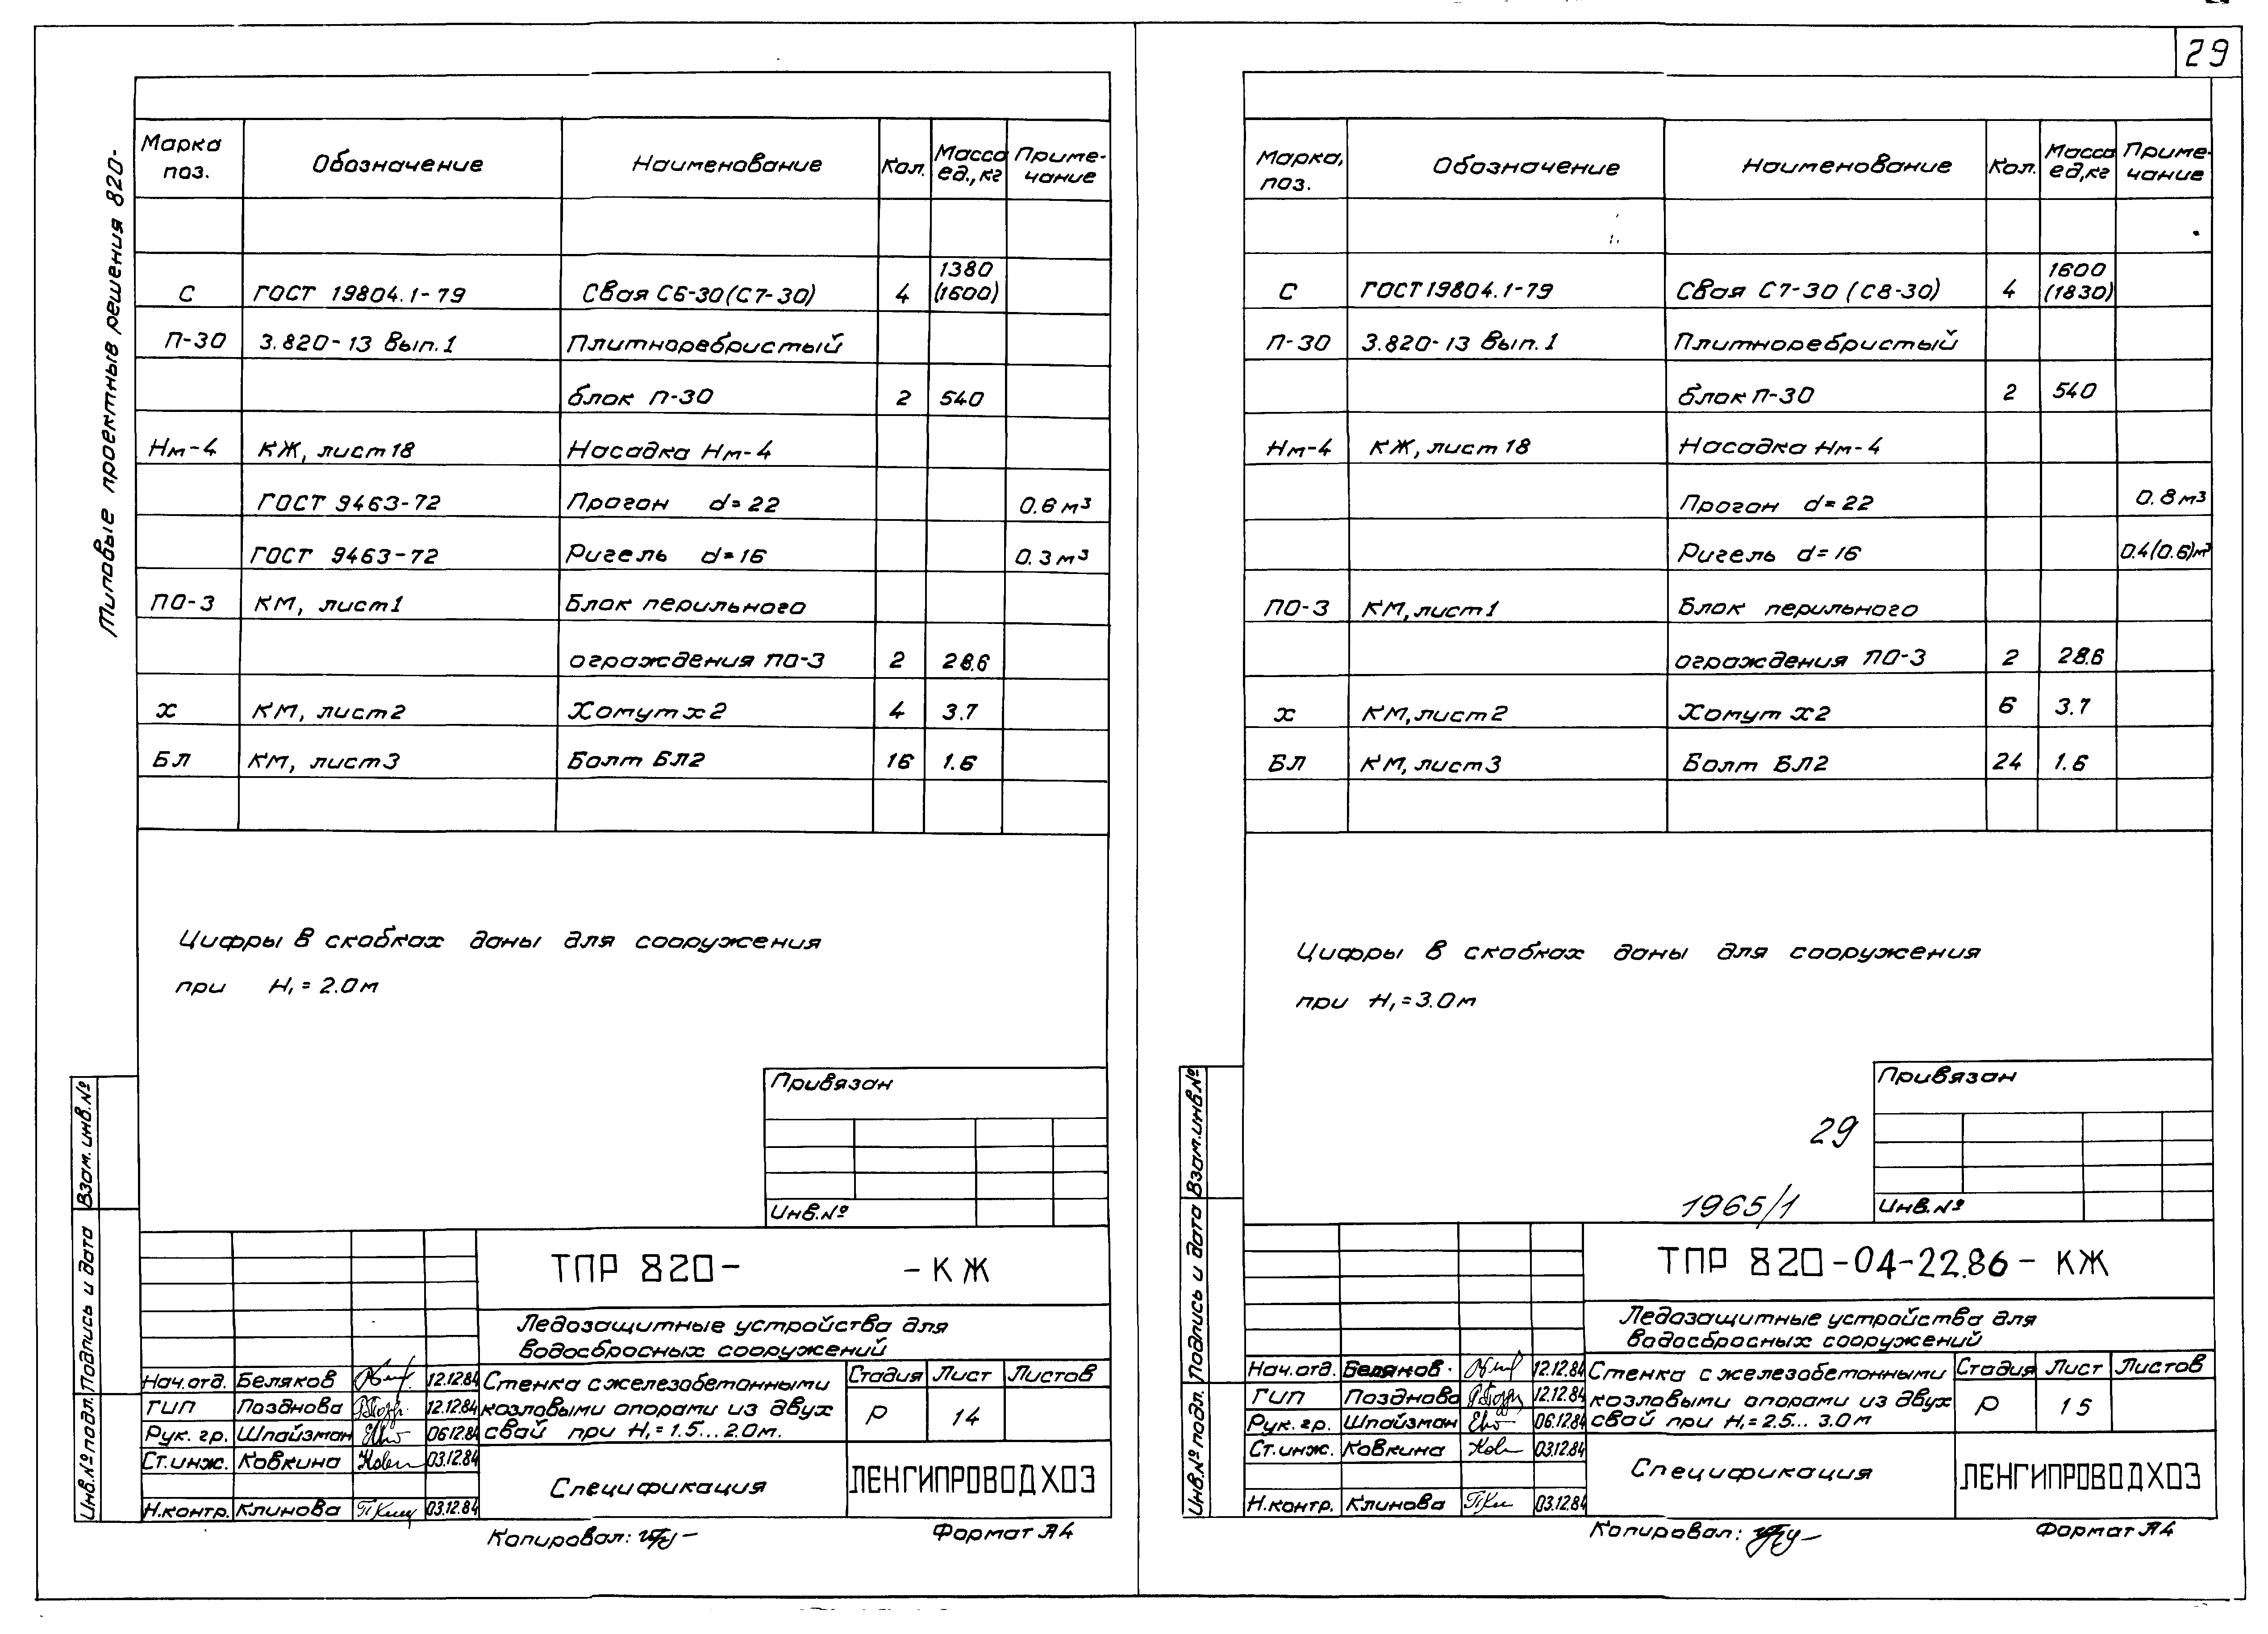 29
Типовые проектные решения 820-
Марка поз. Обозначение Наименование Кол. Масса ед., кг Примечание
С ГОСТ 19804.1-79 Свая С6-30 (С7-30) 4 1380 (1600)
П-30 3.820-13 Вып.1 Плитноребристый
блок П-30 2 540
Нм-4 КЖ, лист 18 Насадка Нм-4
ГОСТ 9463-72 Прогон d=22 0.6 м³
ГОСТ 9463-72 Ригель d=16 0.3 м³
ПО-3 КМ, лист1 Блок перильного
ограждения ПО-3 2 28.6
х КМ, лист2 Хомут х2 4 3.7
БЛ КМ, лист3 Болт БЛ2 16 1.6
Цифры в скобках даны для сооружения
при H₁ = 2.0 м
Привязан
Инв.№
Взам.инв.№
Подпись и дата
Инв.№ подл.
ТПР 820- -КЖ
Ледозащитные устройства для
водосбросных сооружений
Нач.отд. Беляков 12.12.84
ГИП Позднова 12.12.84
Рук. гр. Шпайзман 06.12.84
Ст.инж. Ковкина 03.12.84
Н.контр. Клинова 03.12.84
Стенка с железобетонными
козловыми опорами из двух
свай при H₁ = 1.5...2.0м.
Стадия Лист Листов
Р 14
Спецификация
ЛЕНГИПРОВОДХОЗ
Копировал:
Формат А4
Марка, поз. Обозначение Наименование Кол. Масса ед,кг Примечание
С ГОСТ 19804.1-79 Свая С7-30 (С8-30) 4 1600 (1830)
П-30 3.820-13 Вып.1 Плитноребристый
блок П-30 2 540
Нм-4 КЖ, лист 18 Насадка Нм-4
Прогон d=22 0.8 м³
Ригель d=16 0.4(0.6)м³
ПО-3 КМ, лист1 Блок перильного
ограждения ПО-3 2 28.6
х КМ, лист2 Хомут х2 6 3.7
БЛ КМ, лист3 Болт БЛ2 24 1.6
Цифры в скобках даны для сооружения
при H₁ = 3.0 м
Привязан
29
1965/1
Инв.№
Взам.инв.№
Подпись и дата
Инв.№ подл.
ТПР 820-04-22.86-КЖ
Ледозащитные устройства для
водосбросных сооружений
Нач.отд. Беляков 12.12.84
ГИП Позднова 12.12.84
Рук. гр. Шпайзман 06.12.84
Ст.инж. Ковкина 03.12.84
Н.контр. Клинова 03.12.84
Стенка с железобетонными
козловыми опорами из двух
свай при H₁ = 2.5...3.0 м
Стадия Лист Листов
Р 15
Спецификация
ЛЕНГИПРОВОДХОЗ
Копировал:
Формат А4